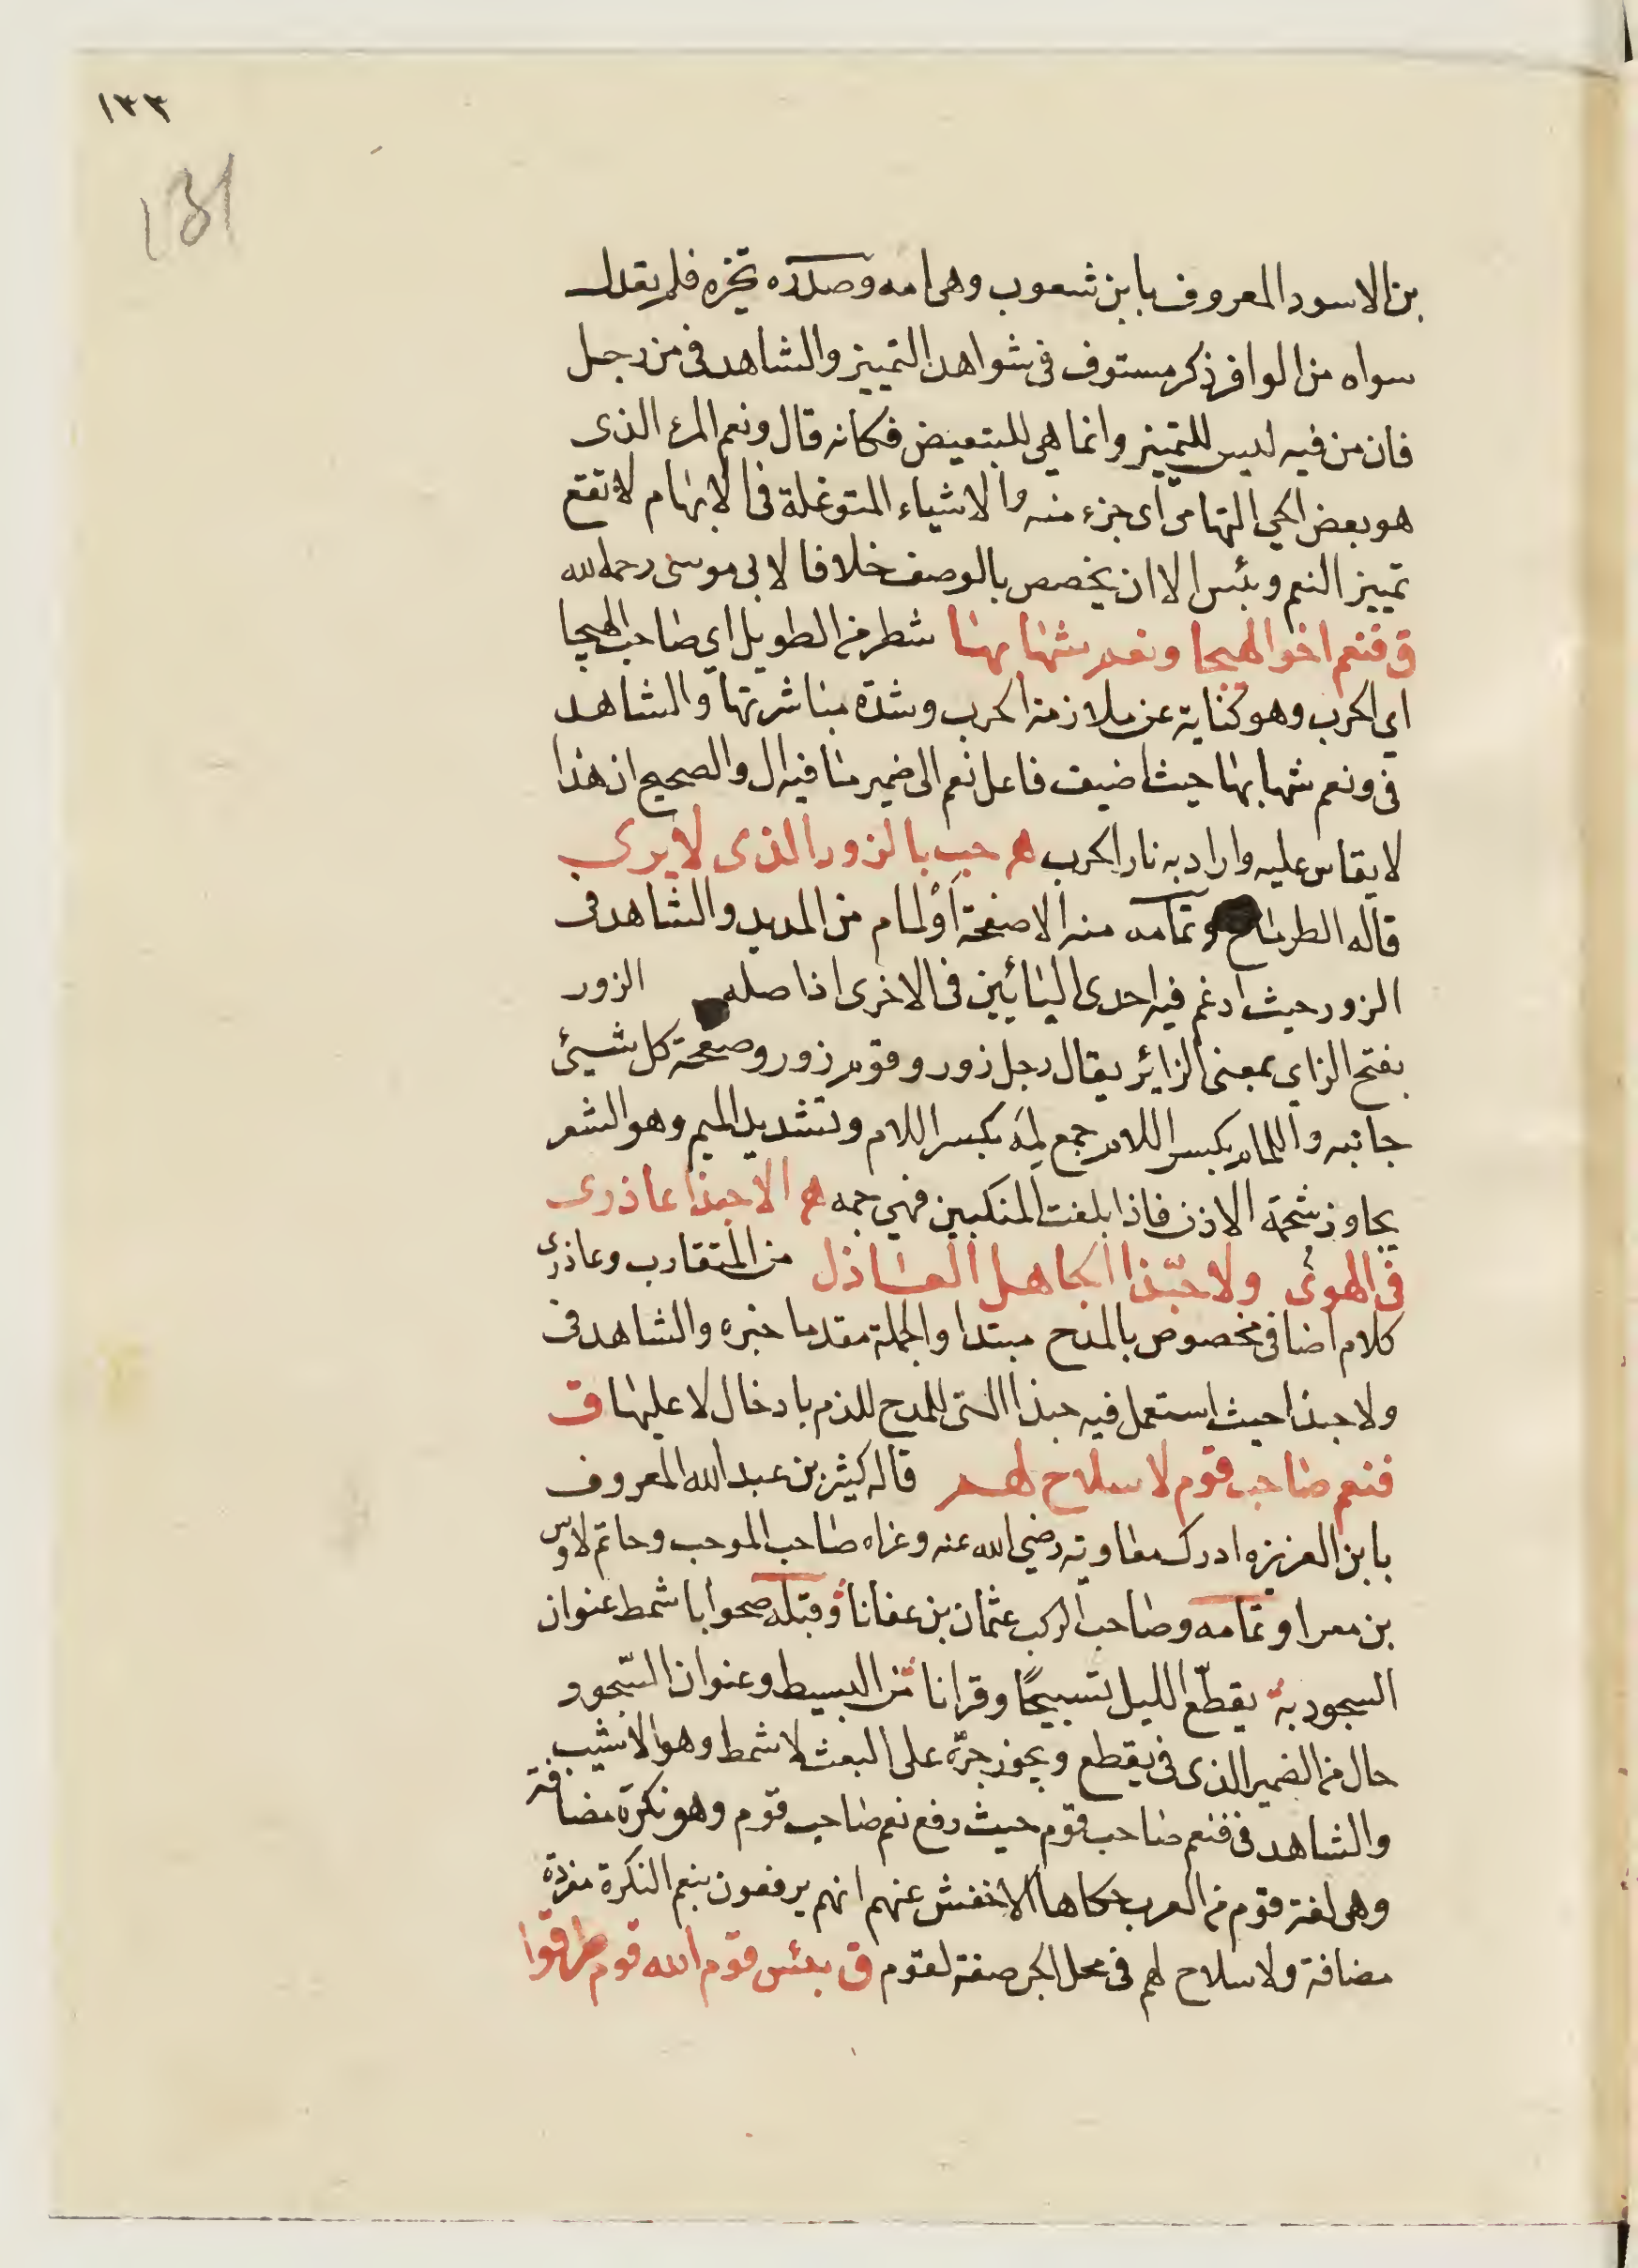 ١٣٣
131
بن الاسود المعروف بابن شعوب وهى امه وصدره تخيره فلم يعدل
سواه من الوافر ذكر مستوف فى شواهد التمييز والشاهد فى من رجل
فان من فيه ليس للتمييز وانما هى للبتعيض فكانه قال ونعم المرء الذى
هو بعض الحي التهامى اى جزء منه والاشياء المتوغلة فى الابهام لا تقع
تمييز النعم وبئس الا ان يخصص بالوصف خلافا لابى موسى رحمه الله
ق فنعم اخو الهيجا ونعم شهابها شطر من الطويل اي صاحب الهيجا
اي الحرب وهو كناية عن ملازمة الحرب وشدة مباشرتها والشاهد
فى ونعم شهابها حيث اضيف فاعل نعم الى ضمير ما فيه ال والصحيح ان هذا
لا يقاس عليه واراد به نار الحرب هـ حب بالزور الذى لا يرى
قاله الطرماح وتمامه منه الا صفحة أو لمام من المديد والشاهد فى
الزور حيث ادغم فيه احدى اليائين فى الاخرى اذ اصله الزور
بفتح الزاي بمعنى الزاير يقال رجل زور وقوم زور وصفحة كل شيئ
جانبه واللمام بكسر اللام جمع لمة بكسر اللام وتشديد الميم وهو الشعر
يجاوز شحمة الاذن فاذا بلغت المنكبين فهي جمه هـ الا حبذا عاذرى
فى الهوى ولا حبّذا الجاهل العاذل من المتقارب وعاذرى
كلام اضافى مخصوص بالمدح مبتدا والجملة مقدما خبره والشاهد فى
ولا حبذا حيث استعمل فيه حبذا التى للمدح للذم بادخال لا عليها ق
فنعم صاحب قوم لا سلاح لهم قاله كثير بن عبد الله المعروف
بابن العزيزه ادرك معاوية رضي الله عنه وعزاه صاحب الموحب وحاتم لاوس
بن معرا وتمامه وصاحب الركب عثمان بن عفانا وقبله ضحوا باشمط عنوان
السجود به يقطّع الليل تسبيحًا وقرانا من البسيط وعنوان السّجود
حال من الضمير الذى فى يقطع ويجوز جرّه على النعث لاشمط وهو الاشيب
والشاهد فى فنعم صاحب قوم حيث رفع نعم صاحب قوم وهو نكرة مضافة
وهى لغة قوم من العرب حكاها الاخفش عنهم انهم يرفعون بنعم النكرة مفردة
مضافة ولا سلاح لهم فى محل الجر صفة لقوم ق بئس قوم الله قوم طرقوا